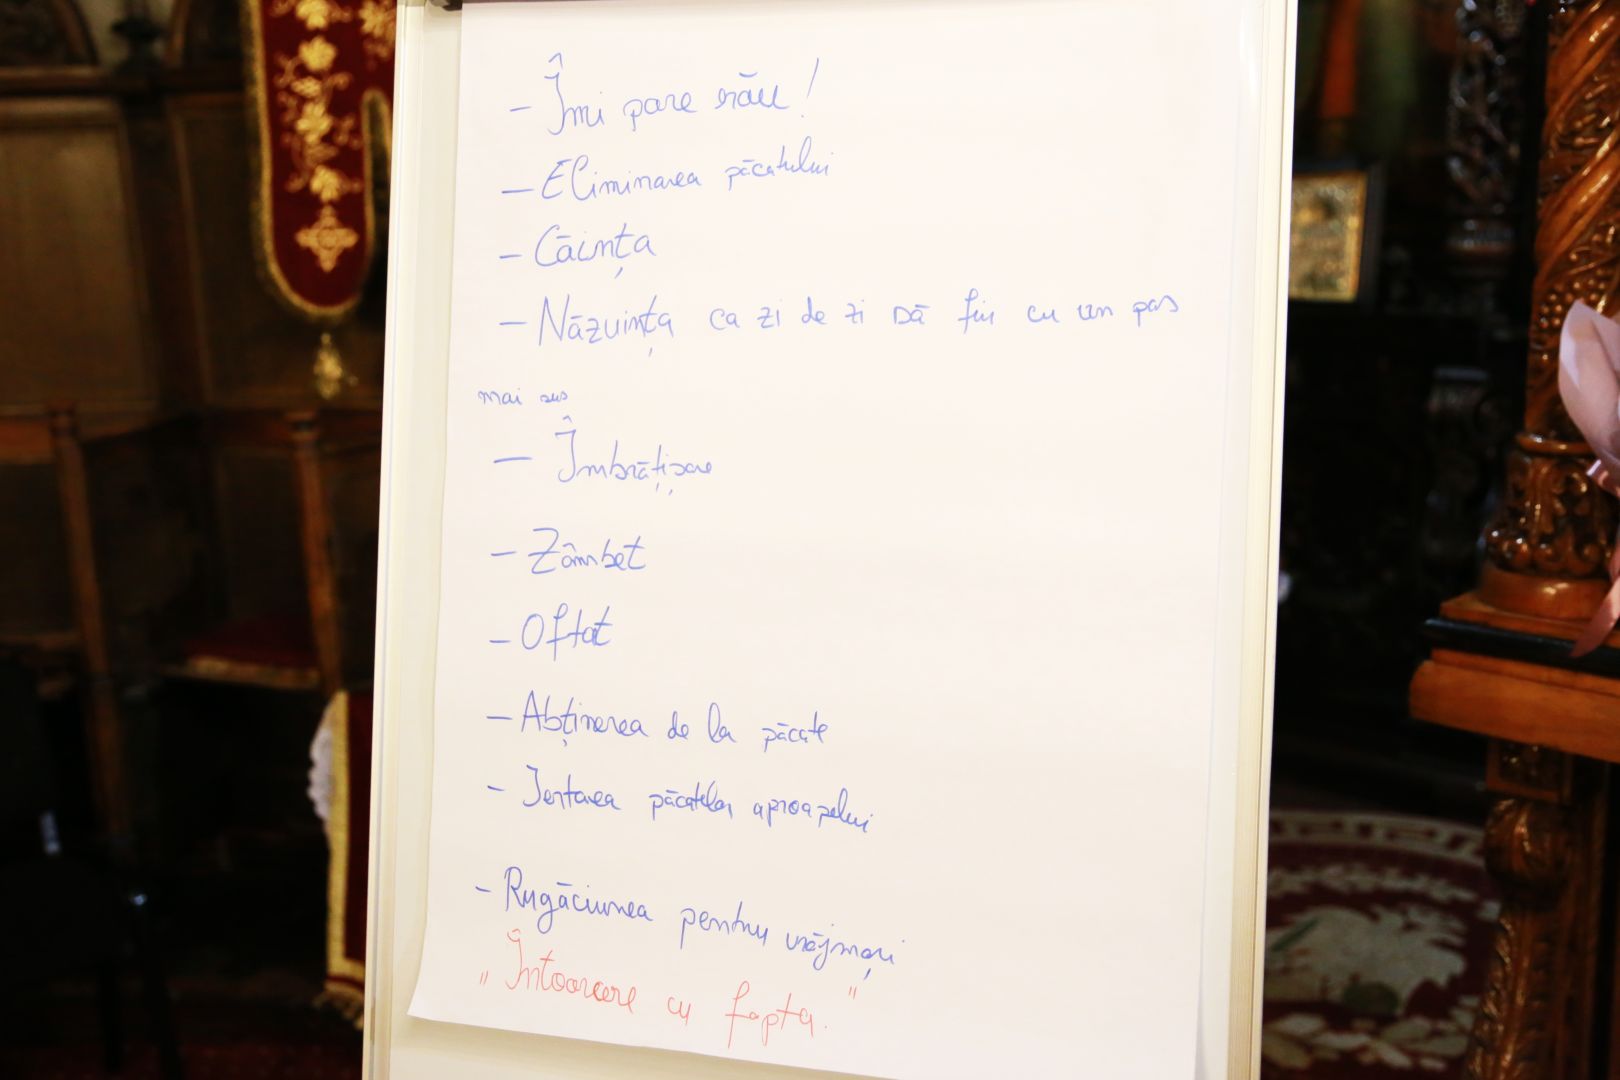 - Îmi pare rău!
- Eliminarea păcatului
- Căința
- Năzuința ca zi de zi să fiu cu un pas
mai sus
- Îmbrățișare
- Zâmbet
- Oftat
- Abținerea de la păcate
- Iertarea păcatelor aproapelui
- Rugăciunea pentru vrăjmași
„Întoarcere cu fapta."